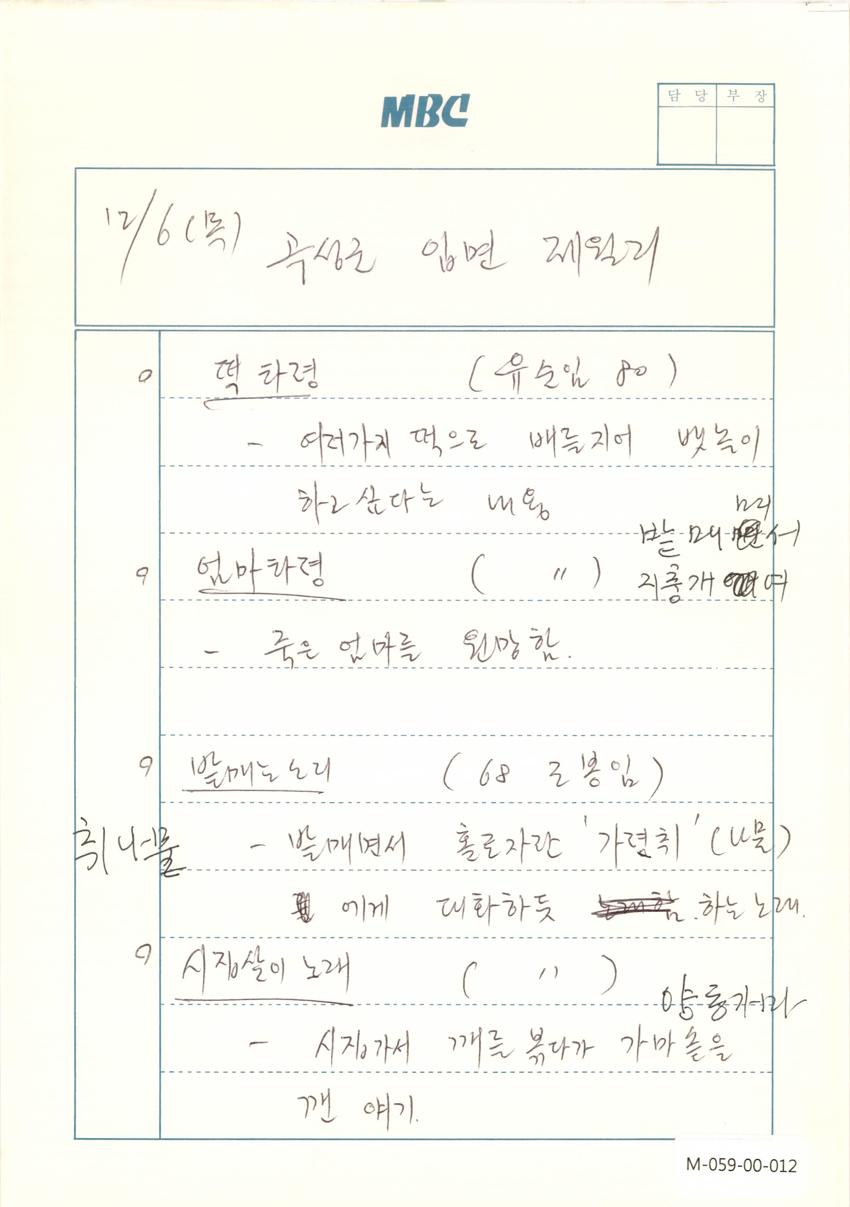 MBC
담 당 부 장
12/6 (목) 곡성군 입면 제월리
o 떡 타령 ( 유순임 80 )
- 여러가지 떡으로 배를지어 뱃놀이
하고싶다는 내용
매
밭 매 서
o 엄마타령 ( 〃 )
지충개 여
- 죽은 엄마를 원망함.
o 밭매는노래 ( 68 봉임 )
취나물 - 밭매면서 홀로자란 '가렴취' (나물)
에게 대화하듯 하는노래.
o 시집살이 노래 ( 〃 )
양동가마
- 시집가서 깨를 볶다가 가마솥을
깬 얘기.
M-059-00-012